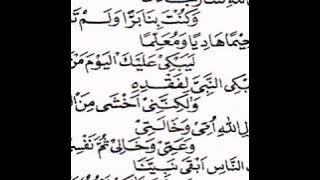 وَكُنْتَ بِنَا بَرًّا وَلَمْ
حِيْمًا هَادِيًا وَمُعَلِّمًا
لِيَبْكِى عَلَيْكَ الْيَوْمَ مَنْ
بْكِى النَّبِىَّ لِفَقْدِهِ
وَلَكِنَّنِىْ اَخْشَى مِنَ
اللهِ اُمِّىْ وَخَالَتِىْ
وَعَمِّىْ وَخَالِىْ ثُمَّ نَفْسِىْ
النَّاسِ اَبْقَى نَبِيَّنَا